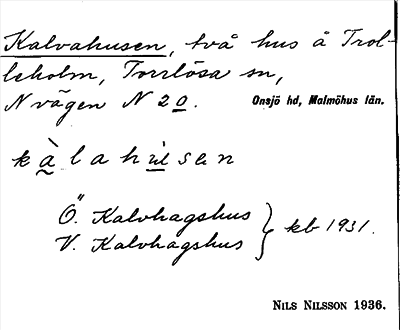 Kalvahusen, två hus å Trol-
leholm, Torrlösa sn,
N vägen N 20.
Onsjö hd, Malmöhus län.
kàlahu̇sen
Ö. Kalvhagshus
V. Kalvhagshus } kb 1931.
NILS NILSSON 1936.